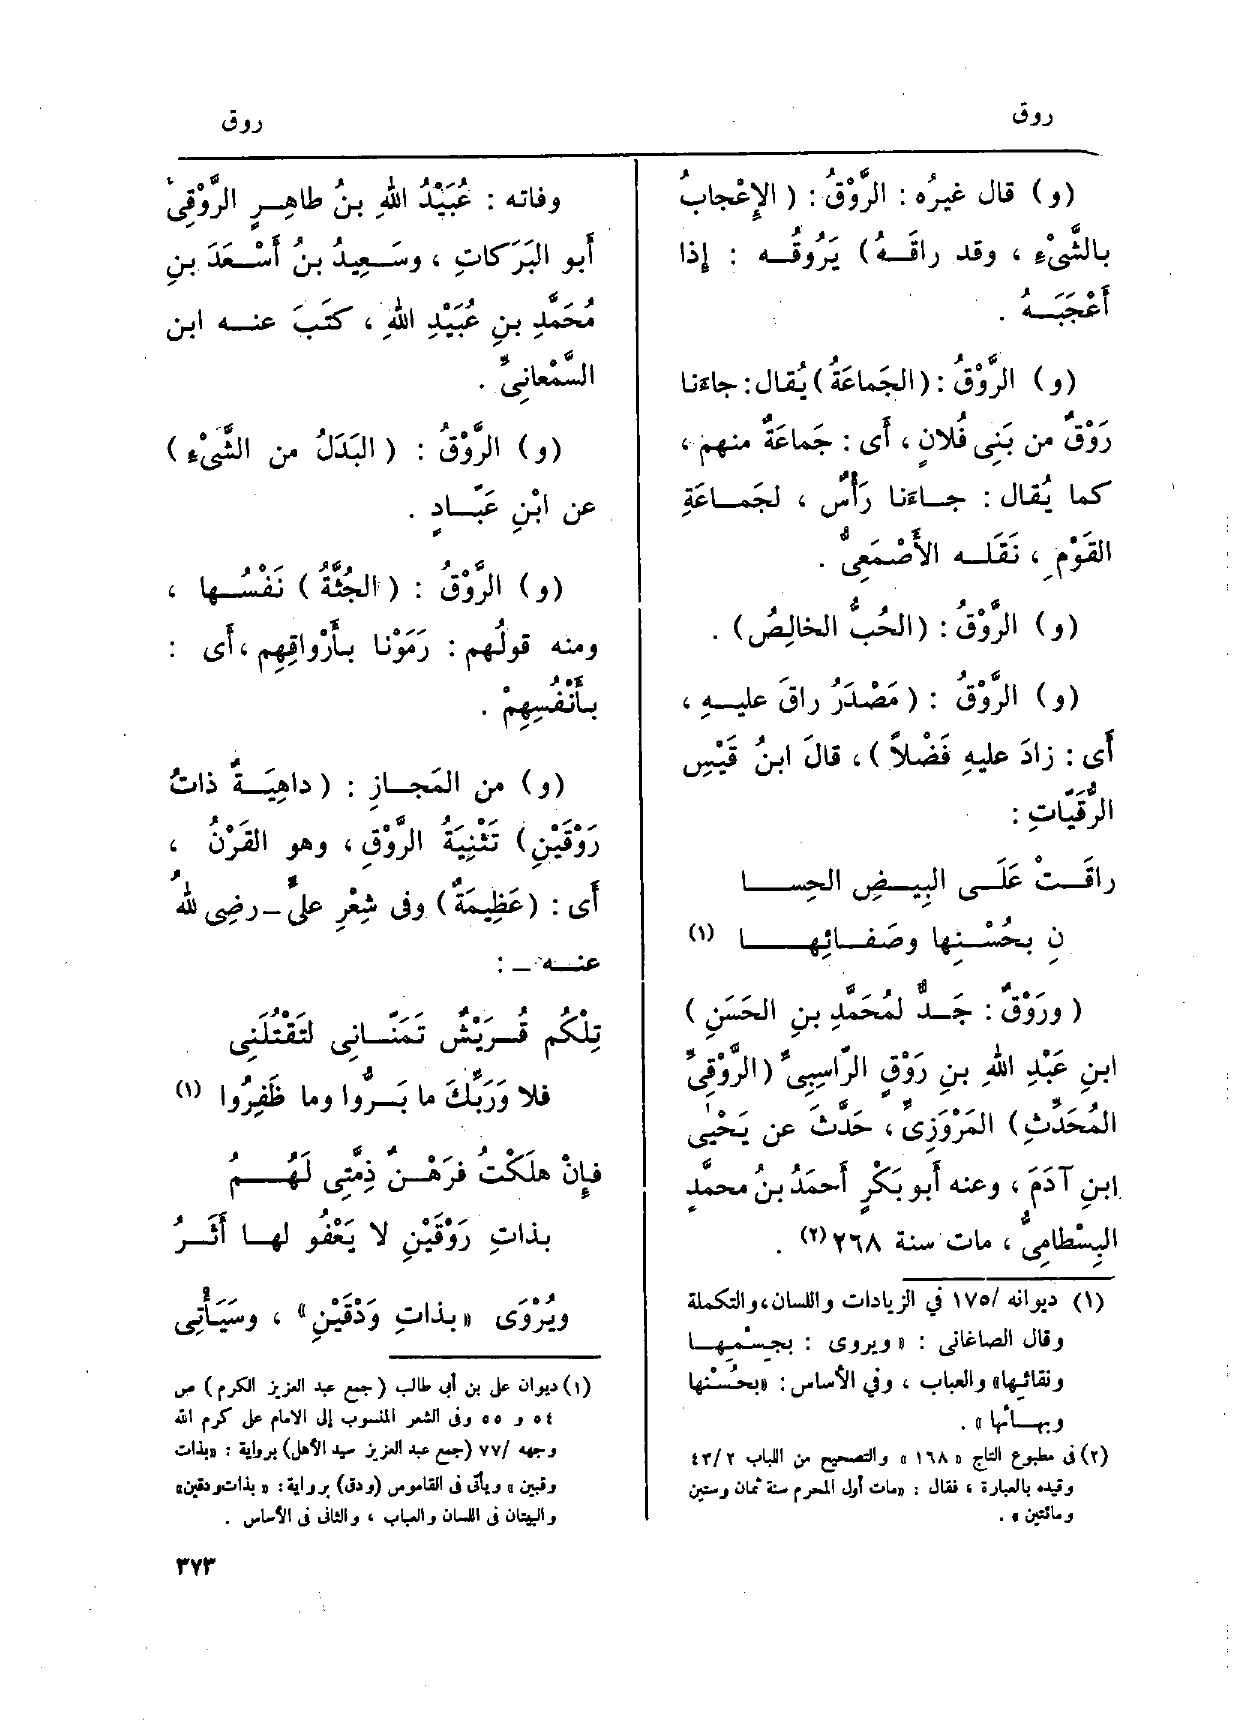 روق
روق
(و) قال غيرُه : الرَّوْقُ : (الإِعْجابُ
بالشَّىْءِ ، وقد راقَـهُ) يَرُوقُـه : إذا
أَعْجَبَـهُ .
(و) الرَّوْقُ : (الجَماعَةُ) يُقال : جاءَنا
رَوْقٌ من بَنِى فُلانٍ ، أى : جَماعَةٌ منهم ،
كما يُقال : جـاءَنا رَأْسٌ ، لجَمـاعَةِ
القَوْمِ ، نَقَلَـه الأَصْمَعِىُّ .
(و) الرَّوْقُ : (الحُبُّ الخالِصُ) .
(و) الرَّوْقُ : (مَصْدَرُ راقَ عليـهِ ،
أَى : زادَ عليهِ فَضْلاً) ، قالَ ابنُ قَيْسِ
الرُّقَيّاتِ :
راقَـتْ عَلَـى البِيـضِ الحِسـا
نِ بحُسْـنِها وصَفـائِهـا (١)
(ورَوْقٌ : جَـدٌّ لمُحَمَّدِ بنِ الحَسَنِ)
ابنِ عَبْدِ اللهِ بنِ رَوْقٍ الرّاسِبِىِّ (الرَّوْقِىِّ
المُحَدِّثِ) المَرْوَزِىِّ ، حَدَّثَ عن يَحْيٰى
ابنِ آدَمَ ، وعنه أَبو بَكْرٍ أَحمَدُ بنُ محمَّدٍ
البِسْطامِىُّ ، مات سنة ٢٦٨ (٢) .
(١) ديوانه /١٧٥ في الزيادات واللسان، والتكملة
وقال الصاغانى : « ويروى : بجِسْمِهـا
ونقائِـها» والعباب ، وفي الأساس : «بحُسْنها
وبهـائها » .
(٢) فى مطبوع التاج « ١٦٨ » والتصحيح من اللباب ٤٣/٢
وقيده بالعبارة ، فقال : «مات أول المحرم سنة ثمان وستين
ومائتين » .
وفاته : عُبَيْدُ اللهِ بنُ طاهِـرٍ الرَّوْقِىُّ
أَبو البَرَكاتِ ، وسَـعِيدُ بنُ أَسْـعَدَ بنِ
مُحَمَّدِ بنِ عُبَيْدِ اللهِ ، كَتَبَ عنـه ابن
السَّمْعانِىِّ .
(و) الرَّوْقُ : (البَدَلُ من الشَّىْءِ)
عن ابْنِ عَبّـادٍ .
(و) الرَّوْقُ : (الجُثَّةُ) نَفْسُـها ،
ومنه قولُهم : رَمَوْنا بأَرْواقِهِم ، أَى :
بأَنْفُسِهِمْ .
(و) من المَجـازِ : (داهِيَـةٌ ذاتُ
رَوْقَيْنِ) تَثْنِيَةُ الرَّوْقِ ، وهو القَرْنُ ،
أَى : (عَظِيمَةٌ) وفى شِعْرِ علىٍّ ـ رضِى اللهُ
عنـه ـ :
تِلْكُم قُـرَيْشٌ تَمَنّـانِى لتَقْتُلَنِى
فلا وَرَبِّكَ ما بَـرُّوا وما ظَفِرُوا (١)
فإِنْ هلَكْتُ فرَهْـنٌ ذِمَّتِى لَهُـمُ
بذاتِ رَوْقَيْنِ لا يَعْفُو لهـا أَثَـرُ
ويُرْوَى «بذاتِ وَدْقَيْنِ» ، وسَيَأْتِى
(١) ديوان على بن أبى طالب (جمع عبد العزيز الكرم) ص
٥٤ و ٥٥ وفى الشعر المنسوب إلى الامام على كرم الله
وجهه /٧٧ (جمع عبد العزيز سيد الأهل) برواية : «بذات
وقبين » ويأتى فى القاموس (ودق) برواية : « بذات ودقين»
والبيتان فى اللسان والعباب ، والثانى فى الأساس .
٣٧٣